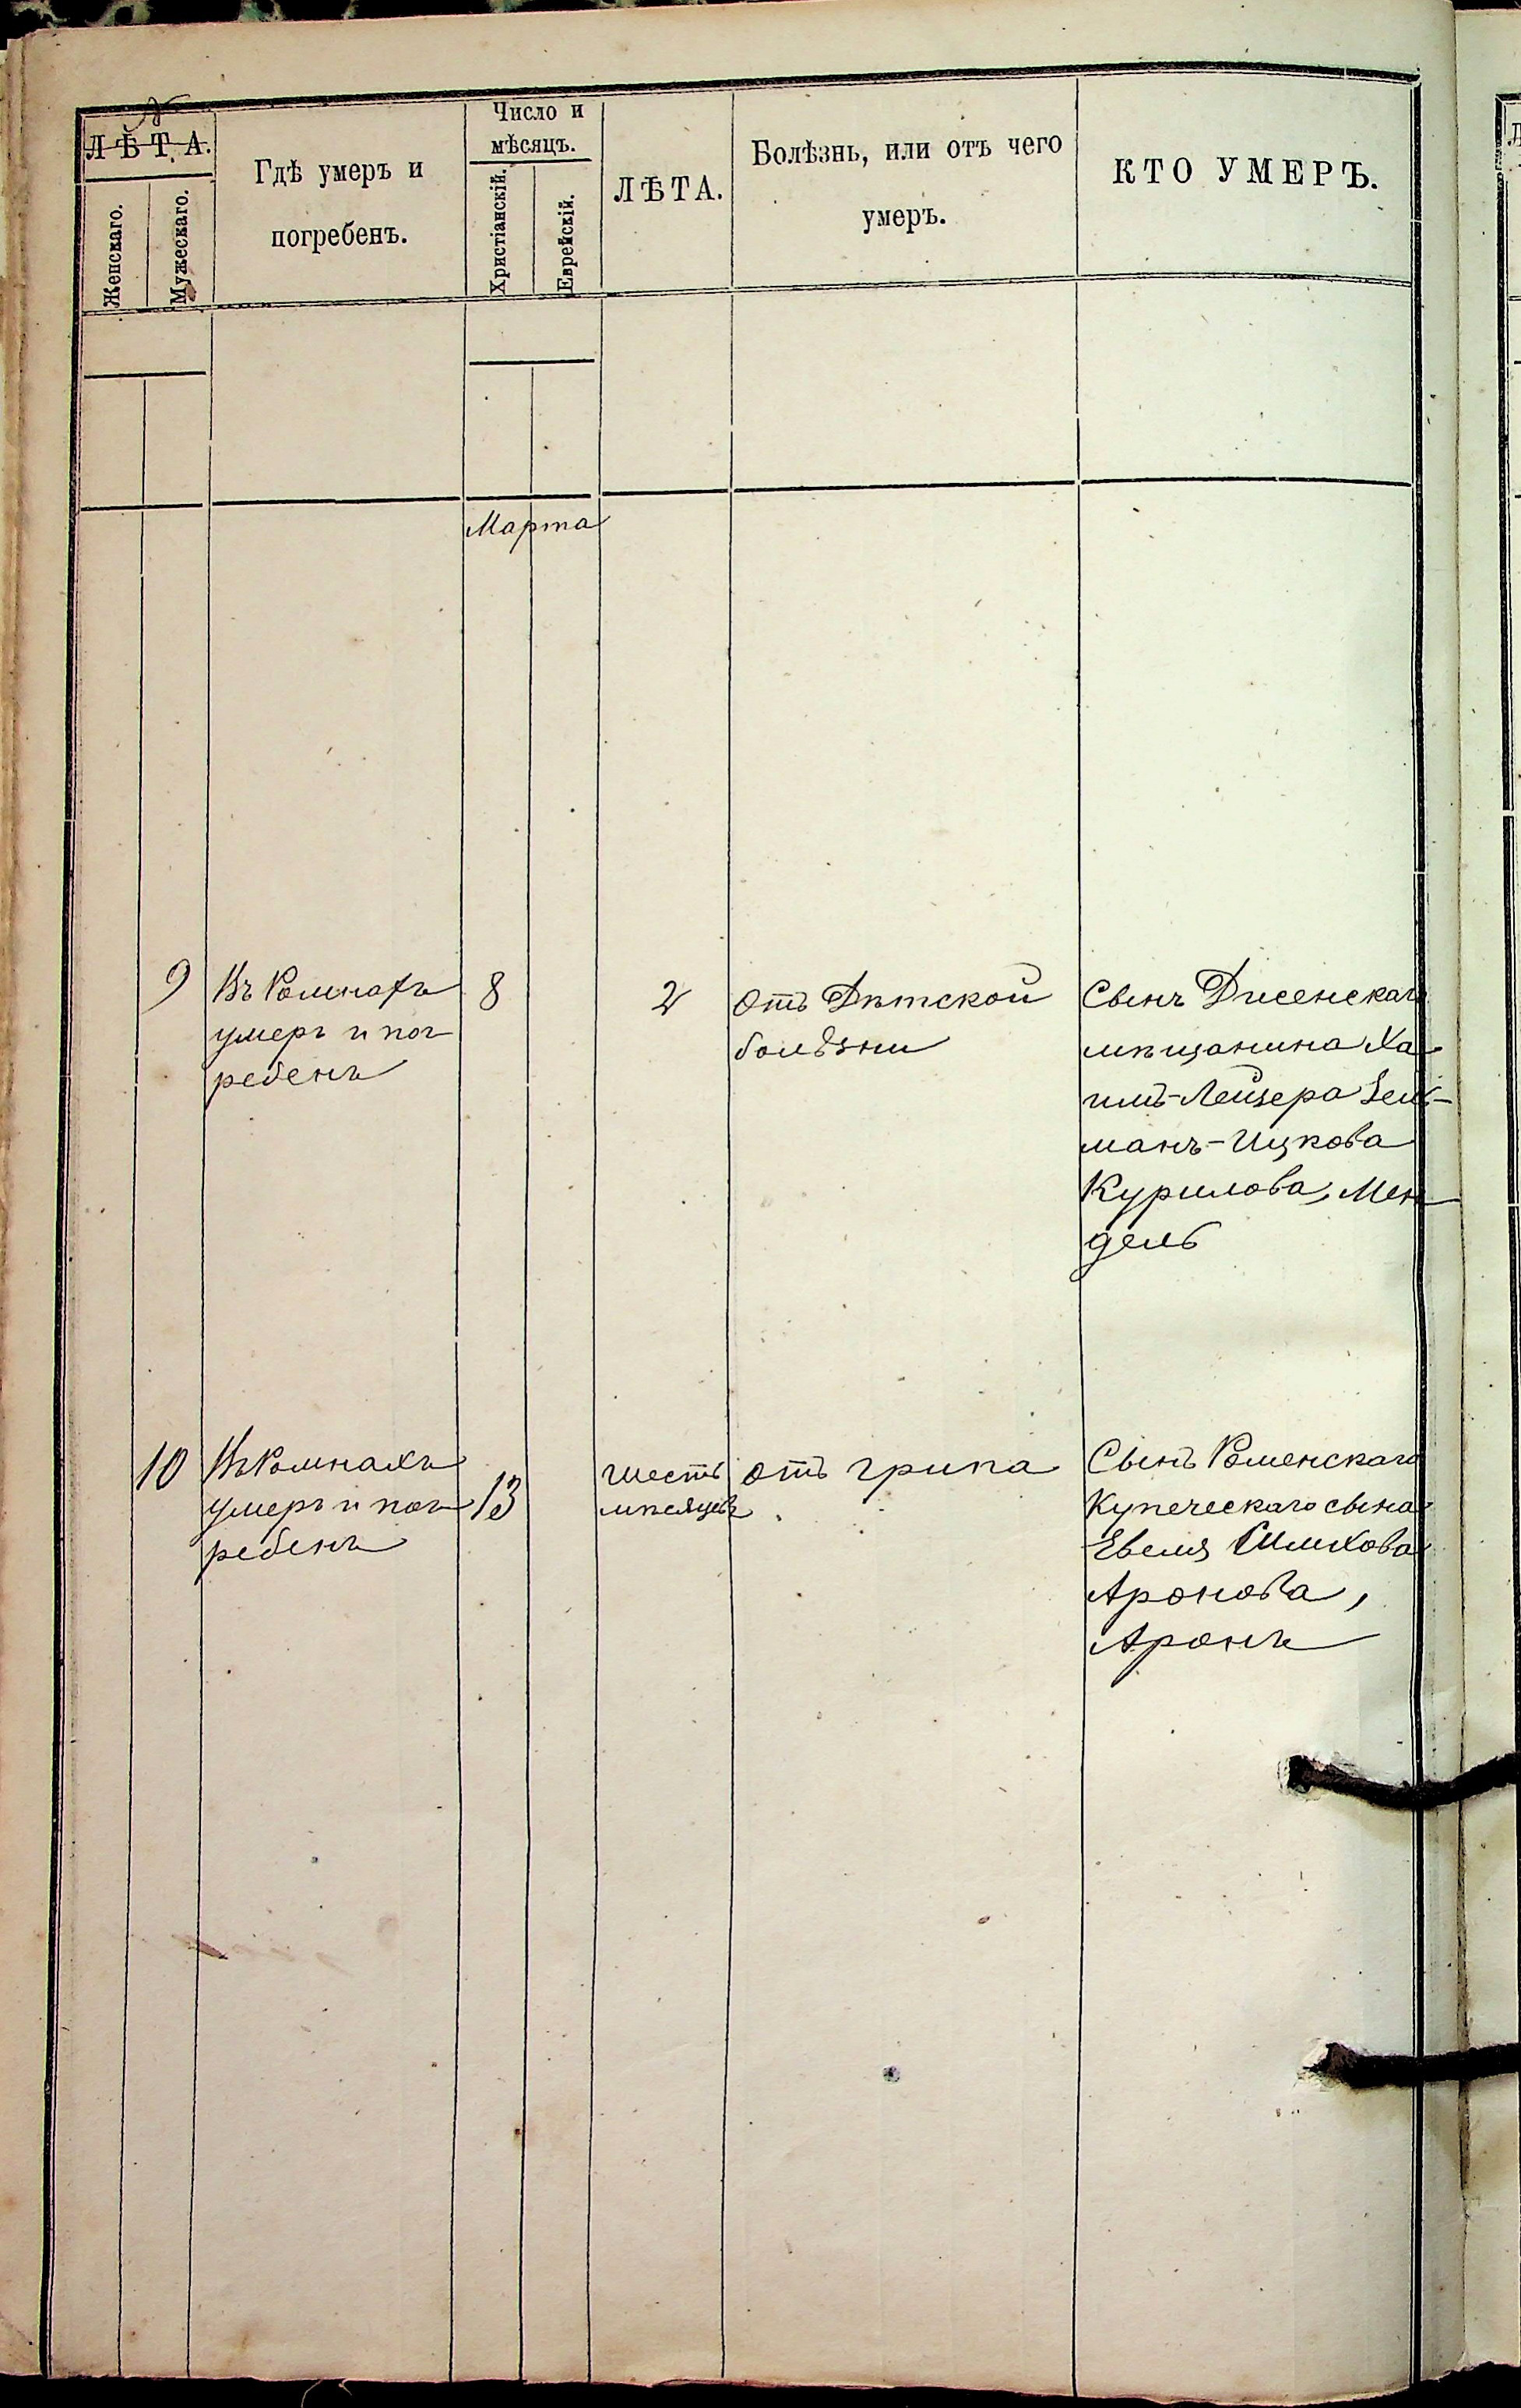 №
ЛѢТА.
Женскаго.
Мужескаго.
Гдѣ умеръ и
погребенъ.
Число и
мѣсяцъ.
Христіанскій.
Еврейскій.
ЛѢТА.
Болѣзнь, или отъ чего
умеръ.
КТО УМЕРЪ.
Марта
9
Въ Ромнахъ
умеръ и пог-
ребенъ
8
2
Отъ Дѣтской
болѣзни
Сынъ Дисенскаго
мѣщанина Ха-
имъ-Лейзера Зель-
манъ-Ицкова
Курилова, Мен-
дель
10
Въ Ромнахъ
умеръ и пог-
ребенъ
13
Шесть
мѣсяцевъ
отъ грипа
Сынъ Роменскаго
Купеческаго сына
Евеля Симхова
Аронова,
Аронъ